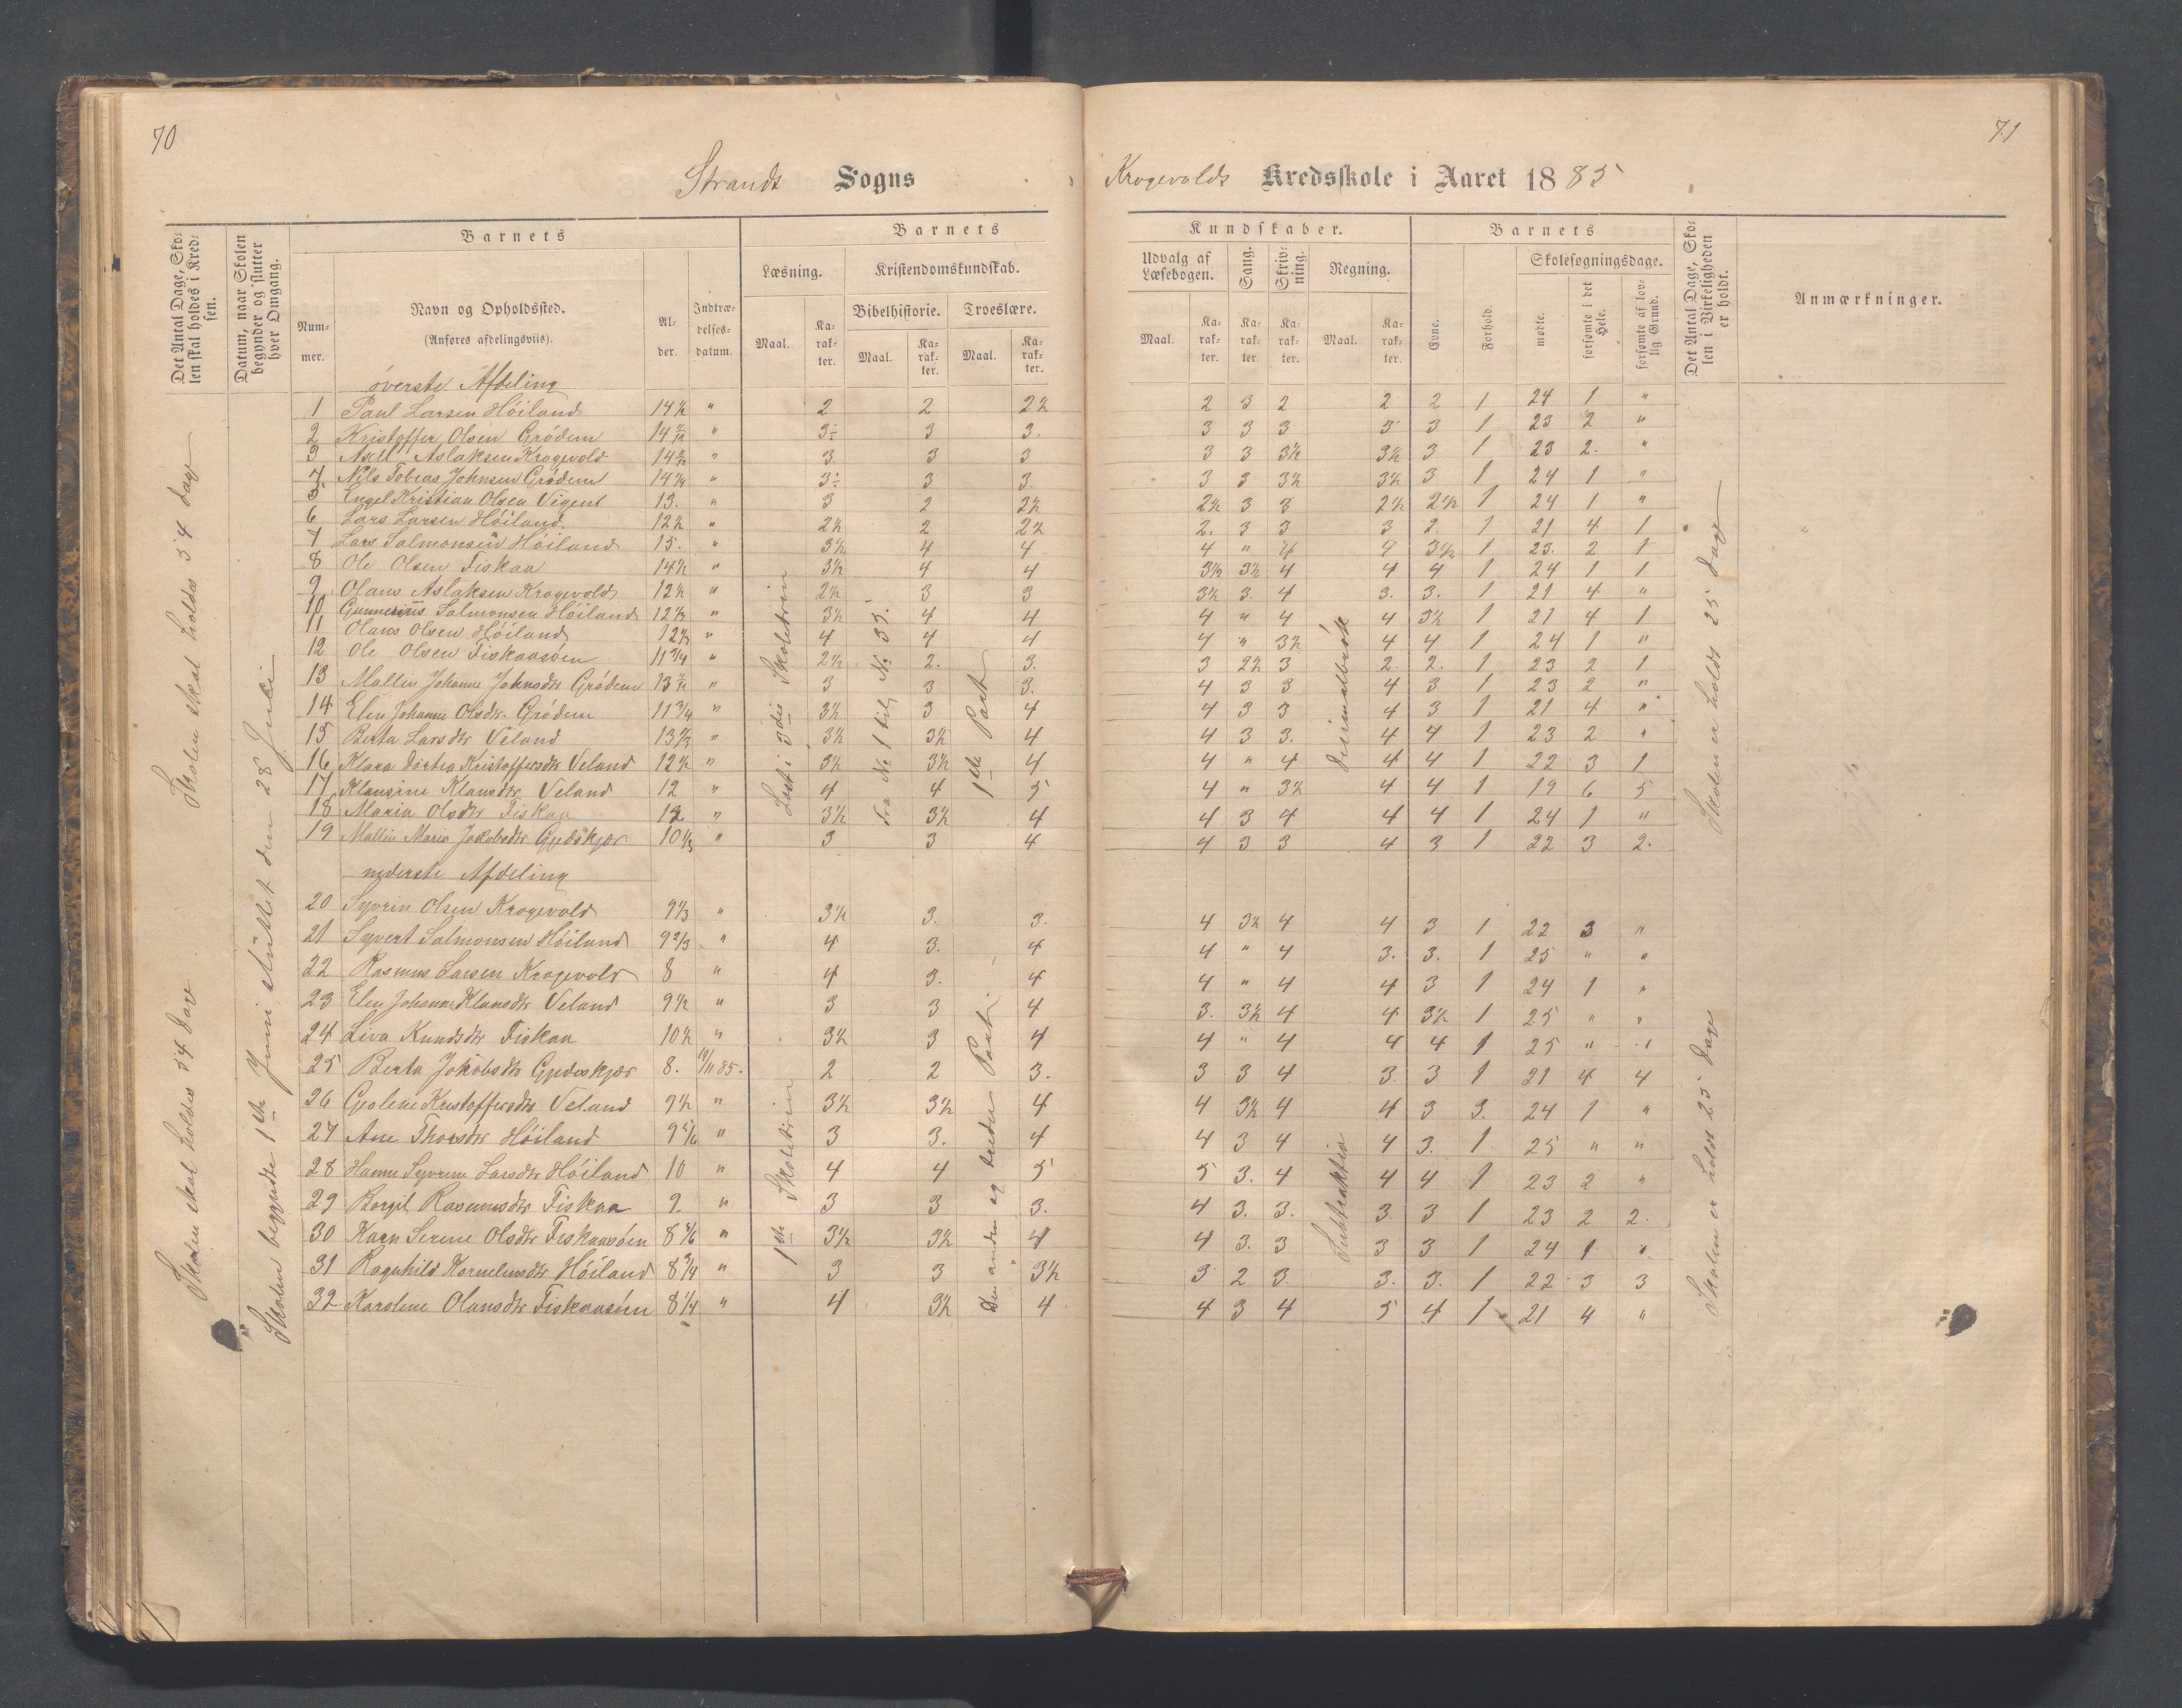 70
Strands Sogns
Det Antal Dage, Skolen skal holdes i Kredsen.
Datum, naar Skolen begynder og slutter hver Omgang.
Barnets
Barnets
Nummer.
Navn og Opholdssted.
(Anføres afdelingsviis).
Alder.
Indtrædelsesdatum.
Læsning.
Kristendomskundskab.
Bibelhistorie. Troeslære.
Maal. Karakter. Maal. Karakter. Maal. Karakter.
øverste Afdeling
1 Paul Larsen Höiland 14½ " 2 2 2½
2 Kristoffer Olsen Grödem " 3÷ 3 3.
3 Axel Aslaksen Krogevold " 3. 3 3
4 Nils Tobias Johnsen Grödem 14¼ " 3÷ 3 3.
5 Engel Kristian Olsen Vigent 13. " 3 2 2½
6 Lars Larsen Höiland. 12½ " 2½ 2 2½
7 Lars Salmonsen Höiland 15. " 3½ 4 4
8 Ole Olsen Fiskaa 14½ " 3½ 4 4
9 Olaus Aslaksen Krogevold 12½ " 2½ 3 3
10 Gunnerius Salmonsen Höiland 12½ " 3½ 4 4
11 Olaus Olsen Höiland " 4 4 4
12 Ole Olsen Fiskaasöen 11¾ " 2½ 2. 3.
13 Mallin Johanne Johnsdtr Grödem " 3 3 3.
14 Elen Johanne Olsdtr. Grödem 11¾ " 3½ 3 4
15 Berta Larsdtr Veland 13⅔ " 3½ 3½ 4
16 Klara Dortea Kristoffersdtr Veland 12½ " 3½ 3½ 4
17 Klausine Klausdtr Veland 12 " 4 4 5
18 Maria Olsdtr Fiskaa 12 " 3½ 3½ 4
19 Mallin Maria Jakobsdtr Gjedskjær 10⅓ " 3 3 4
nederste Afdeling
20 Syvrin Olsen Krogevold 9⅓ " 3½ 3. 3.
21 Syvert Salmonsen Höiland 9⅔ " 4 3. 4
22 Rasmus Larsen Krogevold 8 " 4 3. 4
23 Elen Johanne Klausdtr Veland 9½ " 3 3 4
24 Liva Knudsdtr Fiskaa 10½ " 3½ 3 4
25 Berta Jokobsdtr Gjedeskjær 8. 11/11 85. 2 2 3.
26 Gjoline Kristoffersdtr Veland 9½ " 3½ 3½ 4
27 Ane Thorsdtr Höiland 9⅚ " 3 3. 4
28 Hanne Syvrine Larsdtr Höiland 10 " 4 4 5
29 Borgil Rasmusdtr Fiskaa 9. " 3 3 3.
30 Karn Serine Olsdtr Fiskaasöen 8⅚ " 3½ 3½ 4
31 Ragnhild Kornelusdtr Höiland 8¾ " 3 3 3½
32 Karoline Olausdtr Fiskaasöen 8¼ " 4 3½ 4
Skolen skal holdes 54 dage
Skolen skal holdes 54 dage
Skolen begyndte 1ste Juni sluttet den 28 Juli
Læst i 3die Skoletrin
Fra No 1 til No 35.
1ste Part
1ste Skoletrin
Den anden og tredie Part
71
Krogevolds Kredsskole i Aaret 1885
Kundskaber.
Barnets
Udvalg af Læsebogen.
Sang.
Skrivning.
Regning.
Evne.
Forhold.
Skolesøgningsdage.
mødte.
forsømte i det Hele.
forsømte af lovlig Grund.
Det Antal Dage, Skolen i Virkeligheden er holdt.
Anmærkninger.
Maal. Karakter. Karakter. Karakter. Maal. Karakter.
2 3 2 2 2 1 24 1 "
3 3 3 3 3 1 23 2 "
3 3 3½ 3½ 3 1 23 2. "
3 3 3½ 3½ 3 1 24 1 "
2½ 3 3 2½ 2½ 1 24 1 "
2. 3 3 3 2. 1 21 4 1
4 " 4 4 3½ 1 23. 2 1
3½ 3½ 4 4 4 1 24 1 1
3½ 3. 4 3. 3. 1 21 4 "
4 " 4 4 3½ 1 21 4 1
4 " 3½ 4 4 1 24 1 "
3 2½ 3 2. 2. 1 23 2 1
4 3 3 4 3 1 23 2 "
4 3 3 4 3 1 21 4 "
4 3 3. 4 4 1 23 2 "
4 " 4 4 4 1 22 3 1
4 " 3½ 4 4 1 19 6 5
4 3 4 4 4 1 24 1 "
4 3 3 4 3 1 22 3 2.
4 3½ 4 4 3 1 22 3 "
4 " 4 3. 3. 1 25 " "
4 " 4 4 3 1 24 1 "
3. 3½ 4 4 3½ 1 25 " "
4 " 4 4 4 1 25 " "
3 3 4 3 3 1 21 4 4
4 3½ 4 4 3 3. 24 1 "
4 3 4 4 3. 1 25 " "
5 3. 4 4 4 1 23 2 "
4 3. 3. 3 3 1 23 2 2.
4 3. 3 3 3 1 24 1 "
3 2 3. 3. 3. 1 22 3 3
4 3 4 5 4 1 21 4 "
Decimalbrök
Subtraktion
Skolen er holdt 25 dage
Skolen er holdt 25 dage